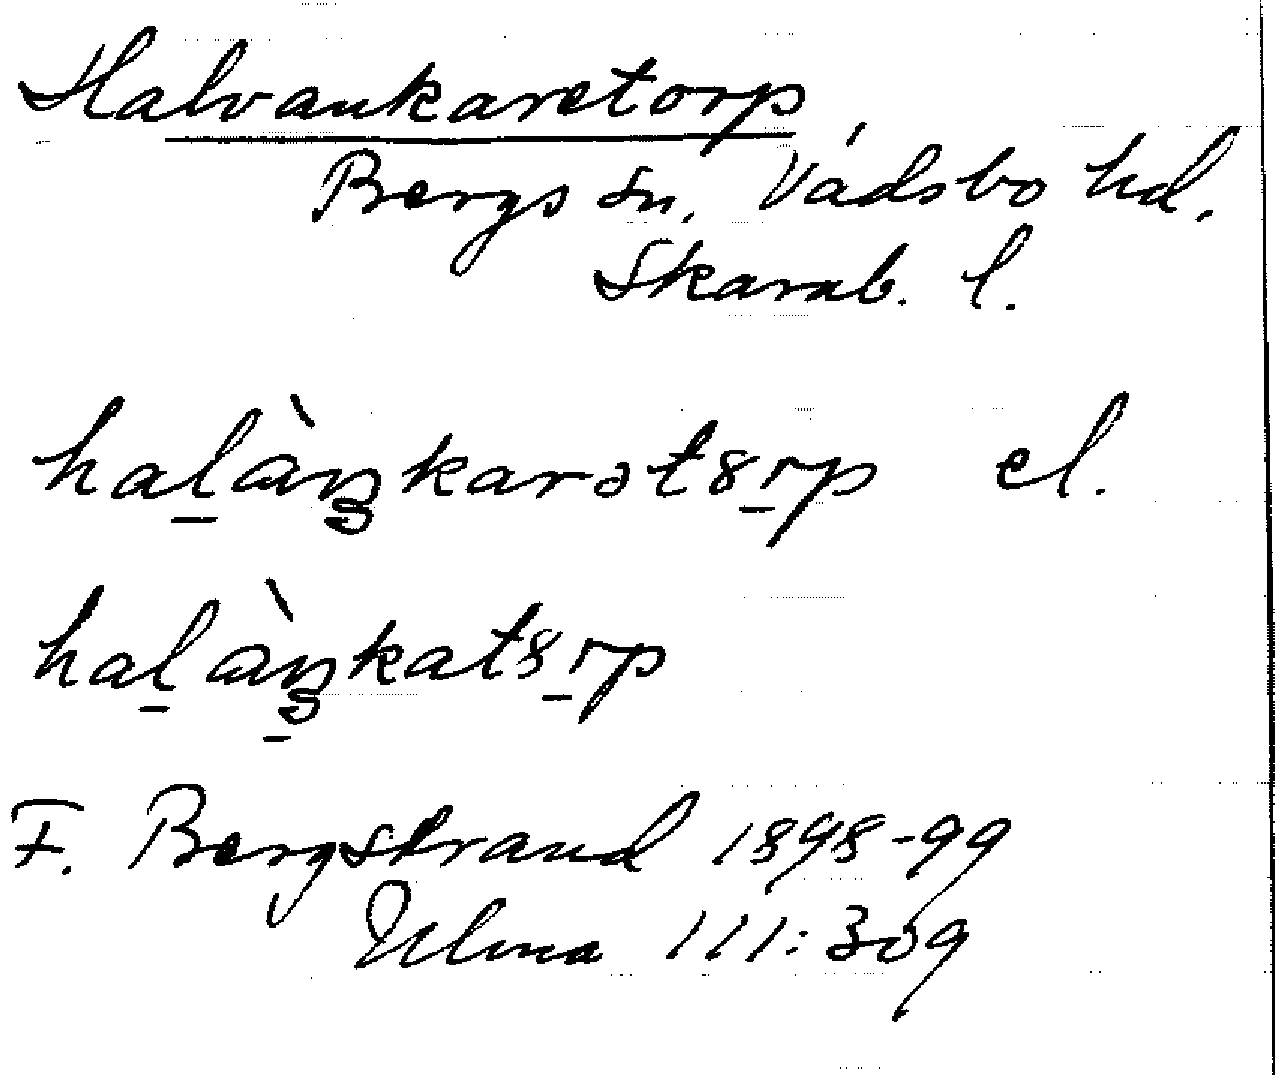 Halvankaretorp
Bergs sn. Vadsbo hd.
Skarab. l.
hal̠àŋkarət8r̠p el.
hal̠àŋ̠kat8r̠p
F. Bergstrand 1898-99
Ulma 111:309